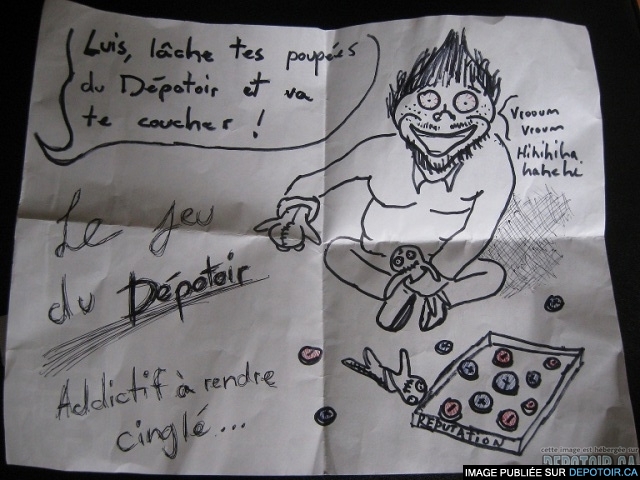 Luis, lâche tes poupées
du Dépotoir et va
te coucher !
Vrooum
Vroum
Hihihiha
hahehe
Le jeu
du Dépotoir
Addictif à rendre
cinglé...
REPUTATION
cette image est hébergée sur
DEPOTOIR.CA
IMAGE PUBLIÉE SUR DEPOTOIR.CA